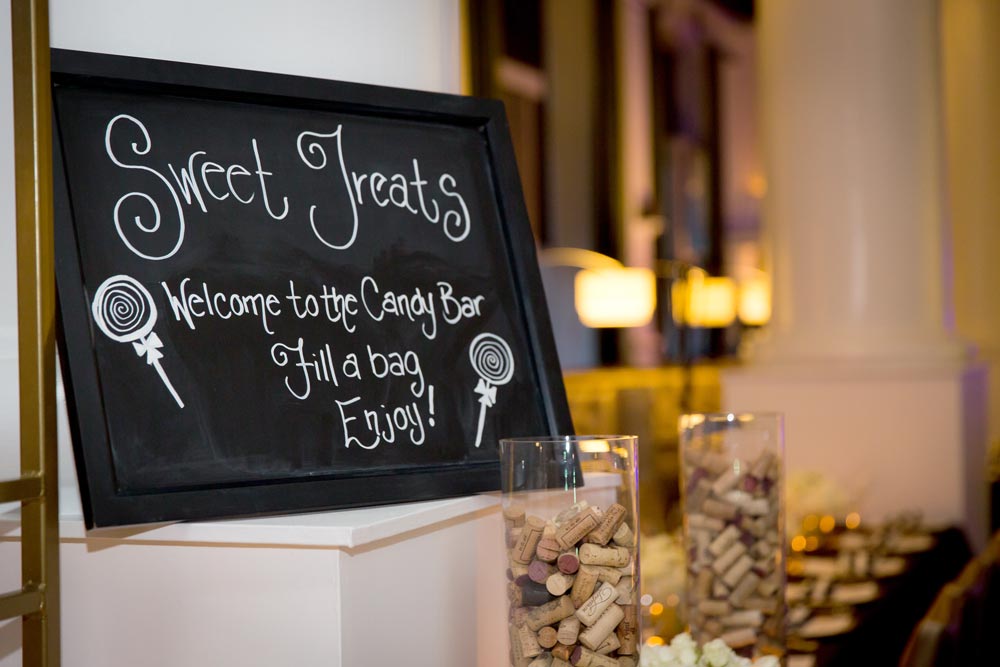 Sweet Treats
Welcome to the Candy Bar
Fill a bag
Enjoy!